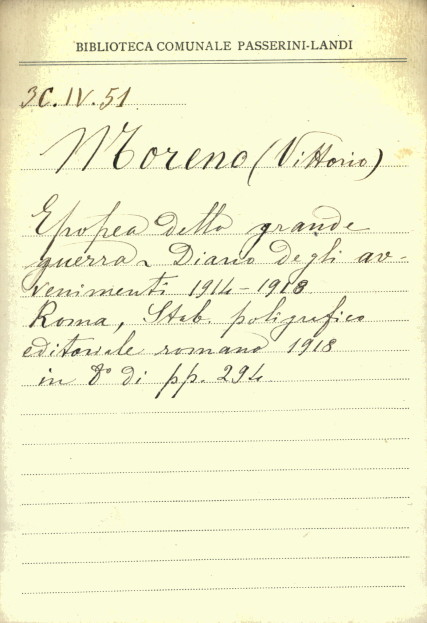 BIBLIOTECA COMUNALE PASSERINI-LANDI
3C.IV.51
Moreno (Vittorio)
Epopea della grande
guerra - Diario degli av-
venimenti 1914-1918
Roma, Stab. poligrafico
editoriale romano 1918
in 8° di pp. 294